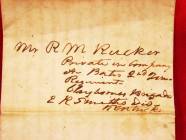 Mr R M Rucker
Private in Company
A Bates 2nd Tenn
Regiment
Claybornes Brigade
E K Smiths Div